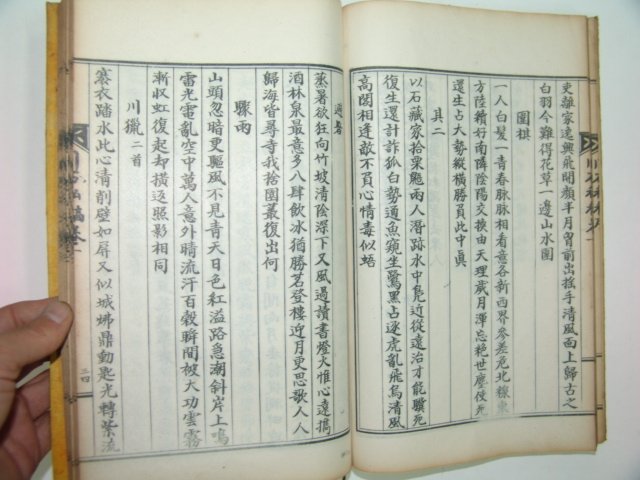 吏離家遠興飛開顔半月胷前出搖手清風面上歸古之
白羽今難得花草一邊山水圖
圍棋
一人白髮一青春脉脉相看意各新西界參差危北線東
方陸續好南陣陰陽交換由天理歲月渾忘絶世塵使死
還生占大勢縱橫勝負此中眞
其二
以石藏家拾 兩人潛跡水中鳧近從遠治才能驥死
復生還計詐狐白勢通魚窺坐鷺黑占逐虎亂飛烏清風
高閣相逢敵不負心情毒似蜈
避暑
蒸暑欲狂向竹坡清陰深下又風過讀書燈火惟心遠携
酒林泉最意多八肆飲冰猶勝茗登樓近月更思歌人人
歸海皆尋寺我捨園叢復出何
驟雨
山頭忽暗更驅風不見青天日色紅溢路急潮斜岸上鳴
雷光電亂空中萬人意外晴流汗百穀瞬間被大功雲霧
漸收虹復起却橫返照影相同
川獵 二首
褰衣踏水此心清削壁如屏又似城 鼎動匙光轉紫流
三四